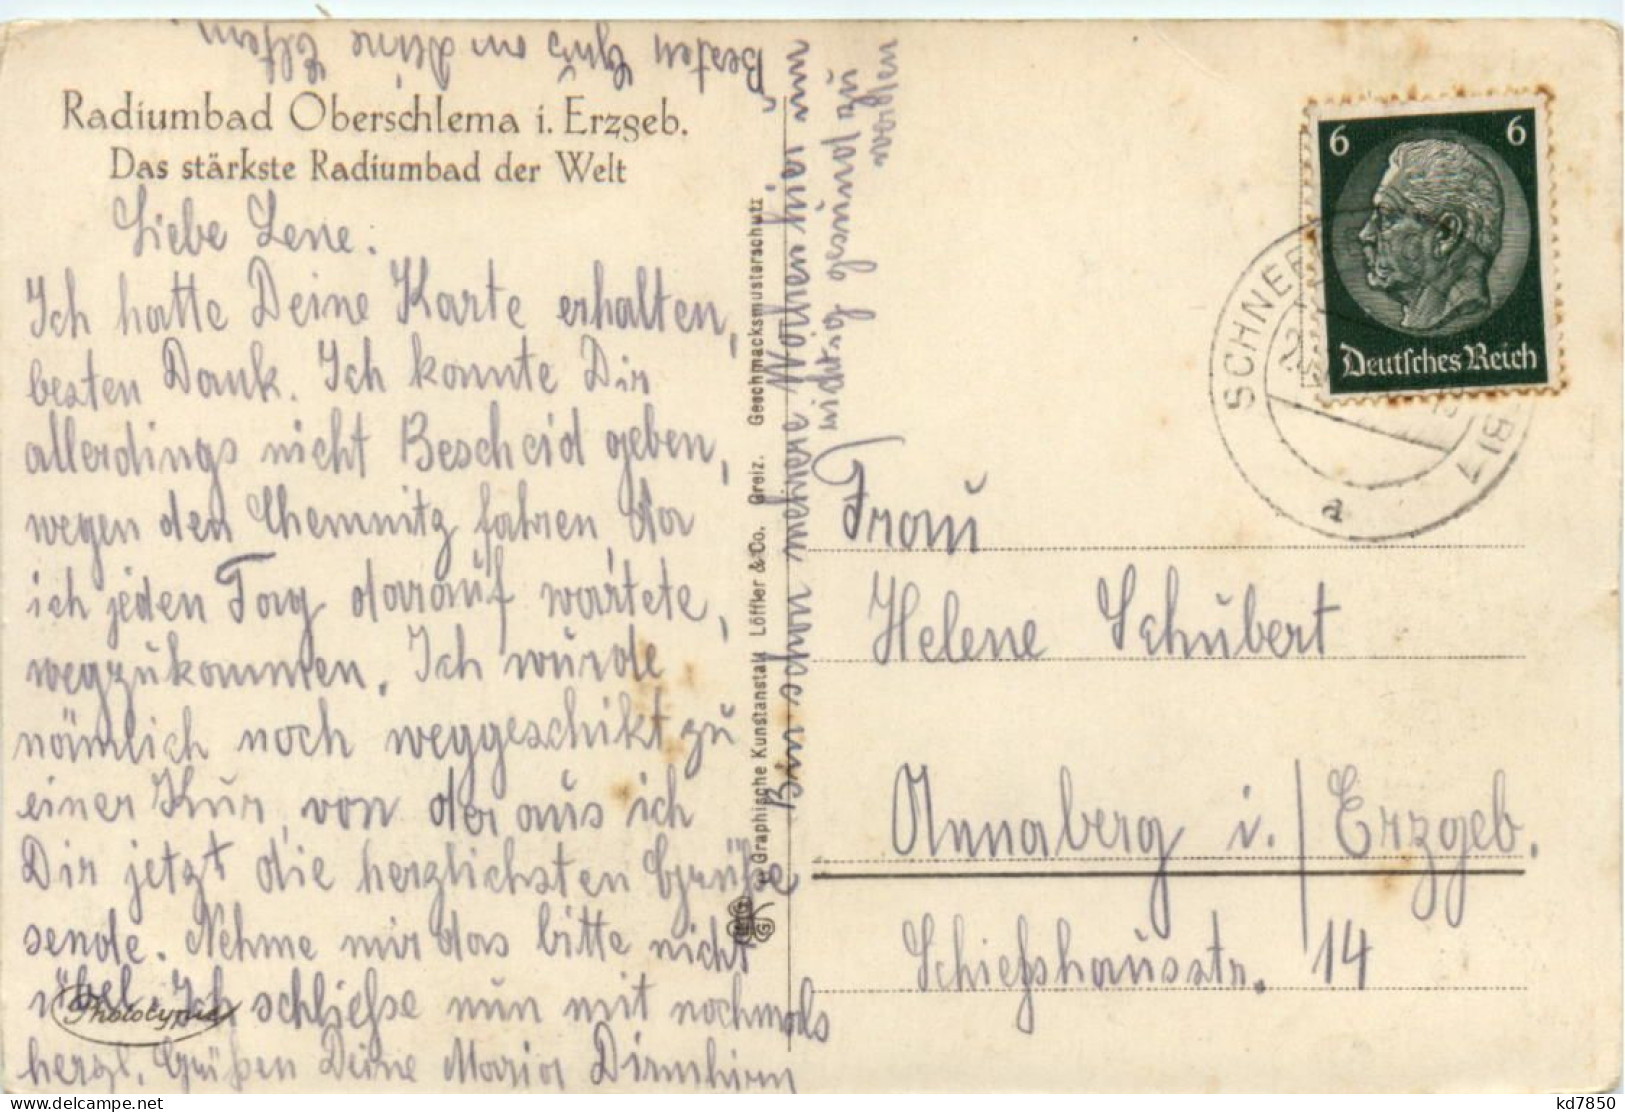 Besten Gruß an deine Eltern
Radiumbad Oberschlema i. Erzgeb.
Das stärkste Radiumbad der Welt
Liebe Lene.
Ich hatte Deine Karte erhalten,
besten Dank. Ich konnte Dir
allerdings nicht Bescheid geben,
wegen den Chemnitz fahren, da
ich jeden Tag darauf wartete,
wegzukommen. Ich wurde
nämlich noch weggeschikt zu
einer Kur, von der aus ich
Dir jetzt die herzlichsten Grüße
sende. Nehme mir das bitte nicht
übel. Ich schließe nun mit nochmals
herzl. Grüßen Deine Maria Dirmhirn
Phototypie
Graphische Kunstanstalt Löffler & Co. Greiz. Geschmacksmusterschutz
Bin schon mehrere Wochen hier um
richtig gesund zu
werden
6 6
Deutsches Reich
SCHNEEBERG
a
Frau
Helene Schubert
Annaberg i./Erzgeb.
Schießhausstr. 14
kd7850